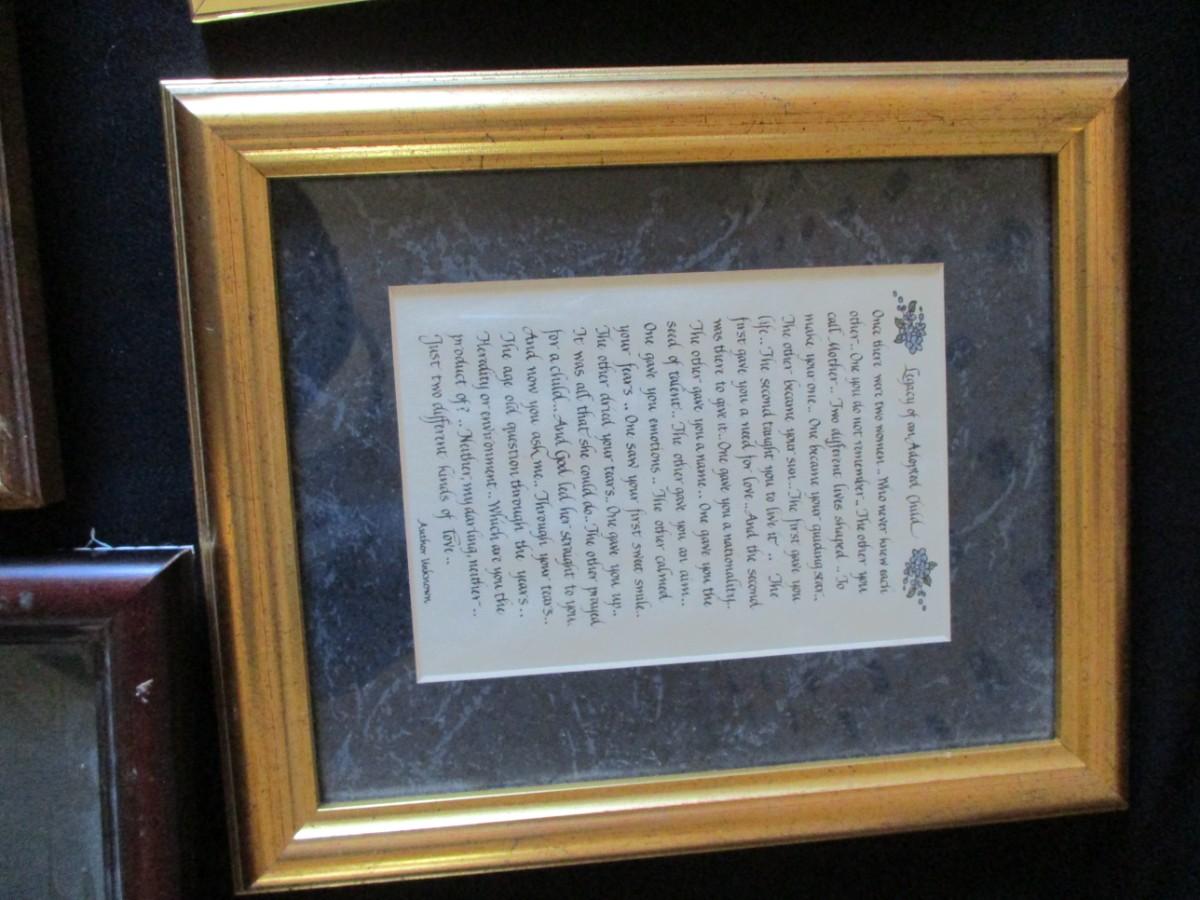 Legacy of an Adopted Child
Once there were two women .. Who never knew each
other... One you do not remember .. The other you
call Mother .. Two different lives shaped .. To
make your one... One became your guiding star...
The other became your sun... The first gave you
life .. The second taught you to live it .. The
first gave you a need for love ... And the second
was there to give it .. One gave you a nationality.
The other gave you a name .. One gave you the
seed of talent .. The other gave you an aim ..
One gave you emotions .. The other calmed
your fears .. One saw your first sweet smile..
The other dried your tears.. One gave you up..
It was all that she could do.. The other prayed
for a child... And God led her straight to you.
And now you ask me.. Through your tears..
The age old question through the years ..
Herality or environment .. Which are you the
product of? .. Neither, my darling, neither ...
Just two different kinds of Love ..
Author Unknown